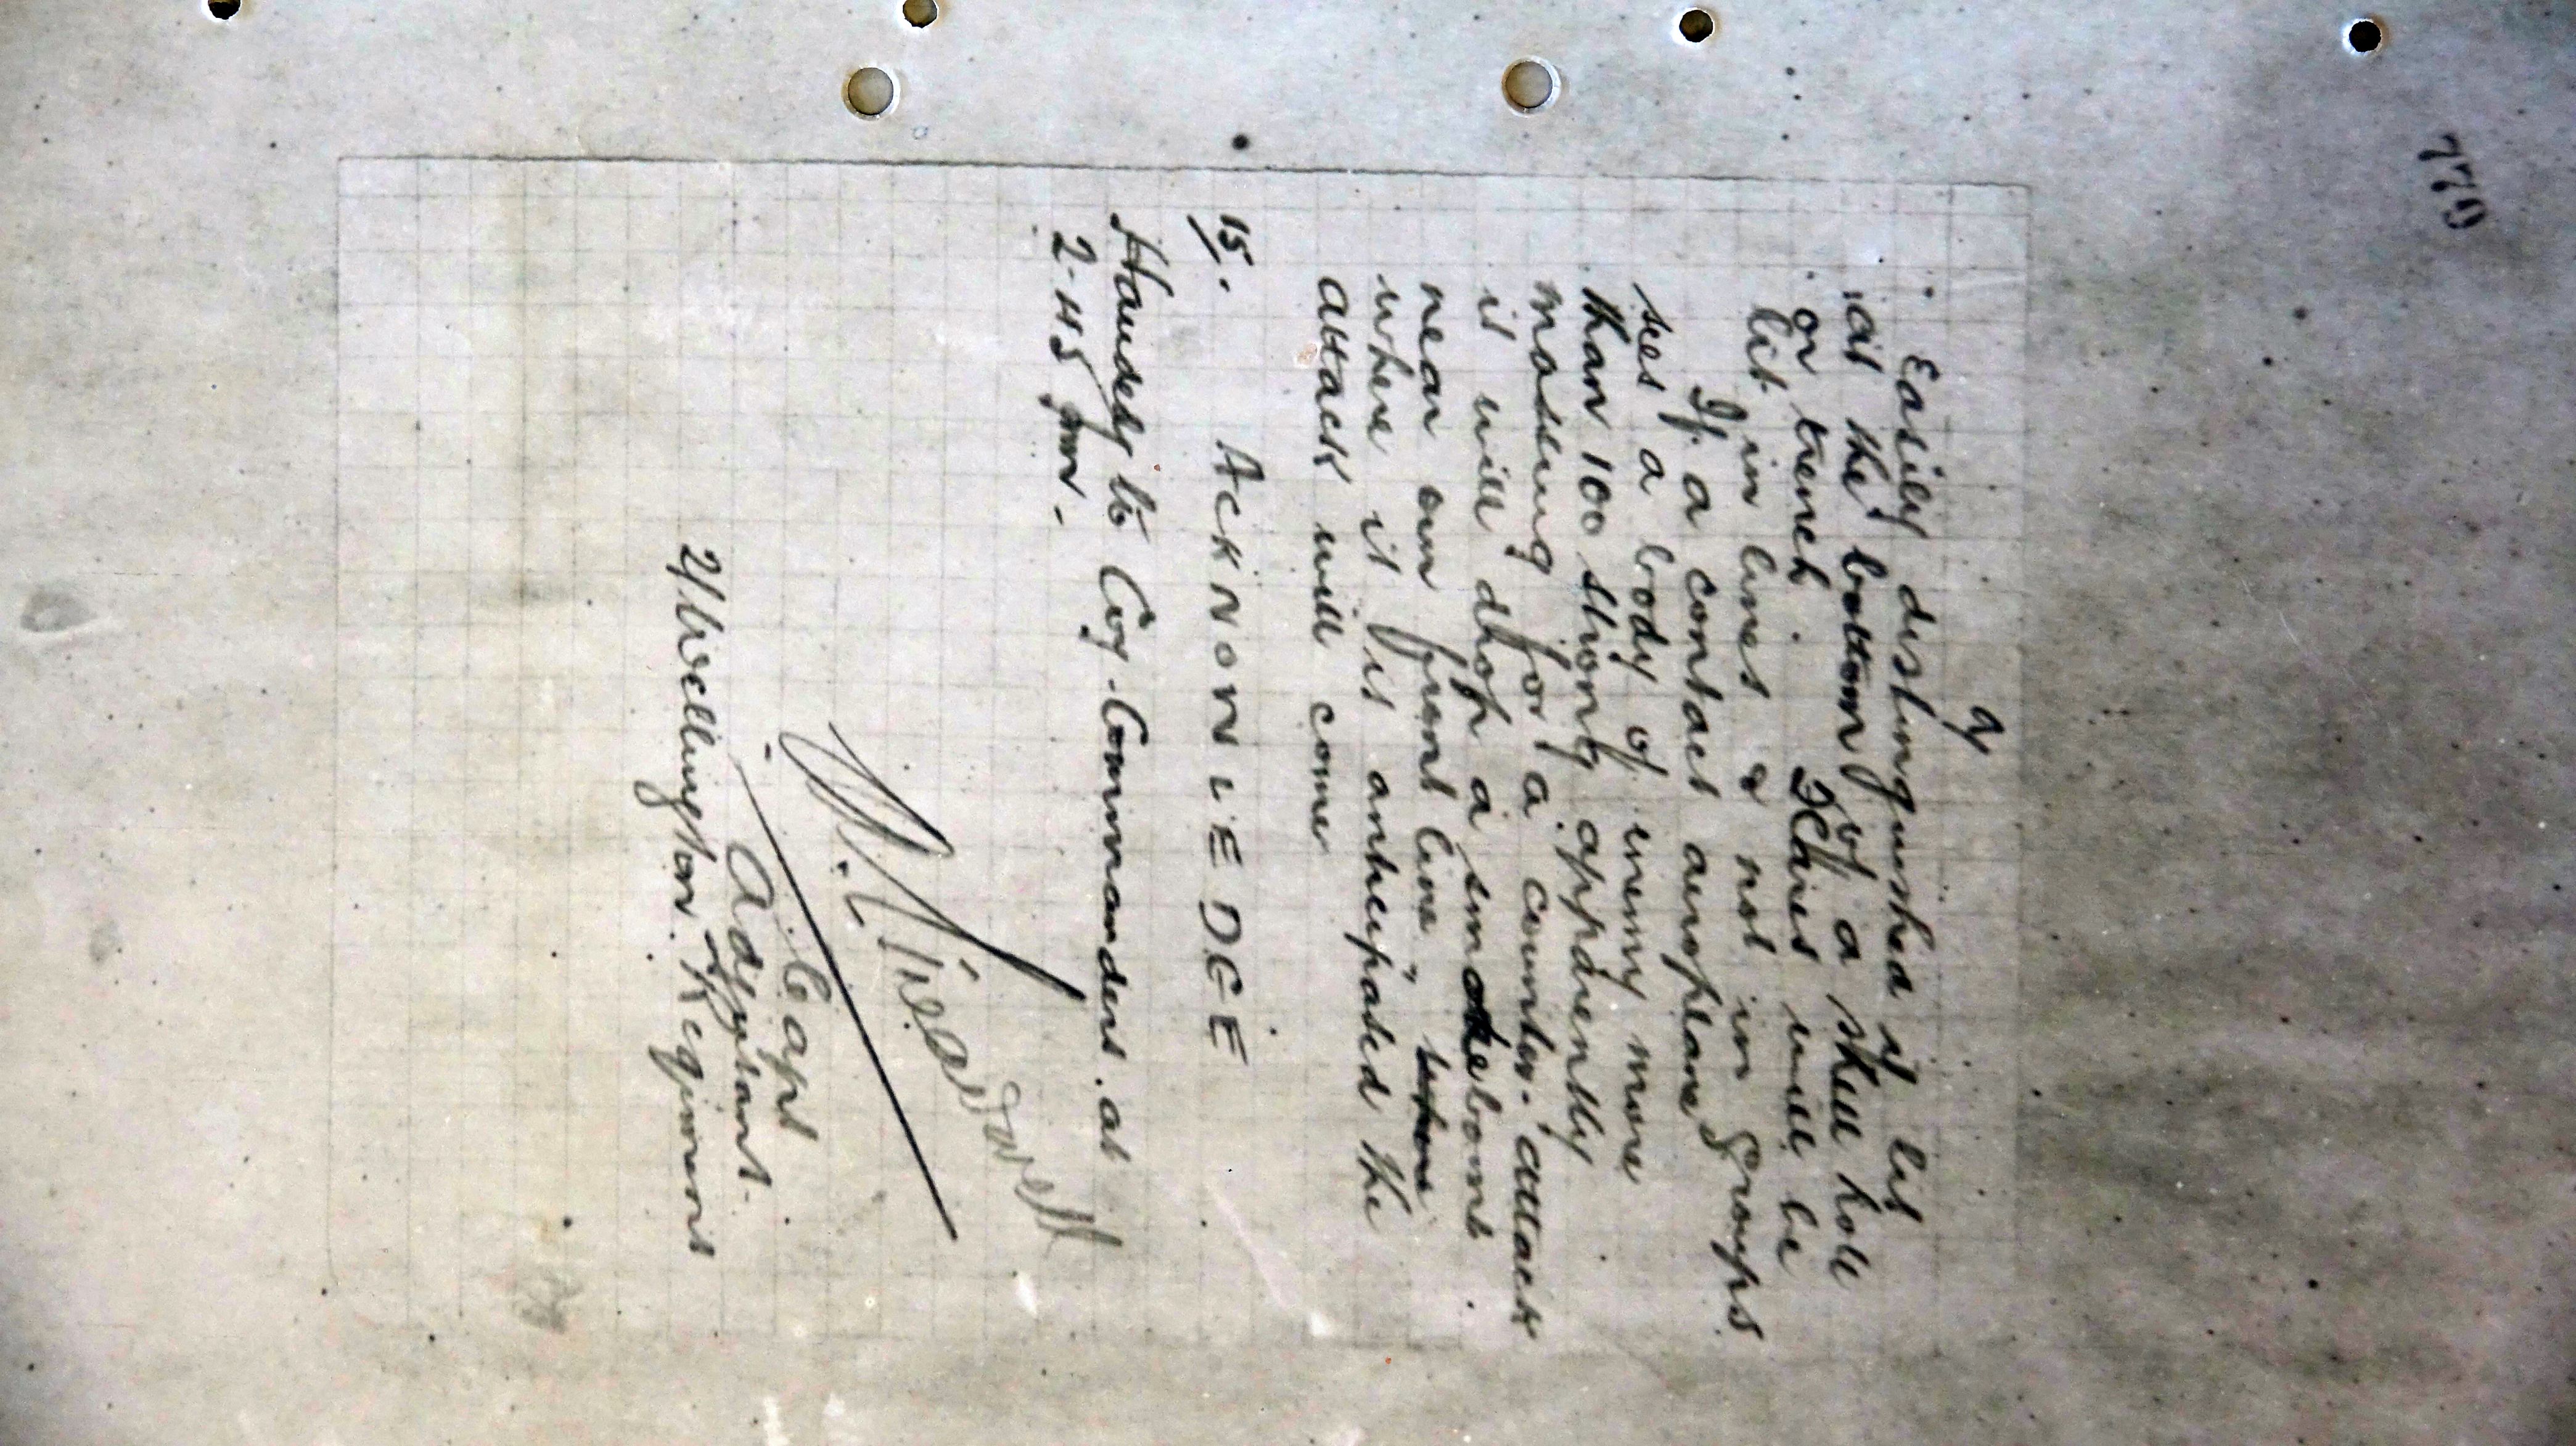 779
9
Easily distinguished if lit
at the bottom of a shell hole
or trench. Flares will be
lit in lines & not in groups
If a contact aeroplane
sees a body of enemy more
than 100 strong apparently
massing for a counter-attack
it will drop a smoke bomb
near our front line,
where it is anticipated the
attack will come
15. ACKNOWLEDGE
Handed to Coy-Commanders at
2-45 pm.
Capt
Adjutant.
2/Wellington Regiment